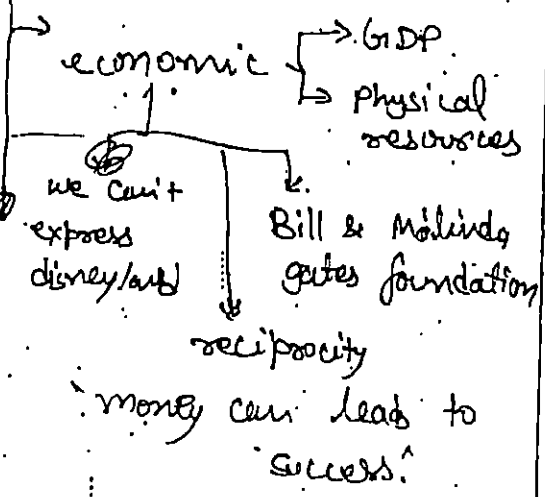 economic
GDP
Physical
resources
we can't
express
disney/
Bill & Malinda
gates foundation
reciprocity
"money can lead to
success."